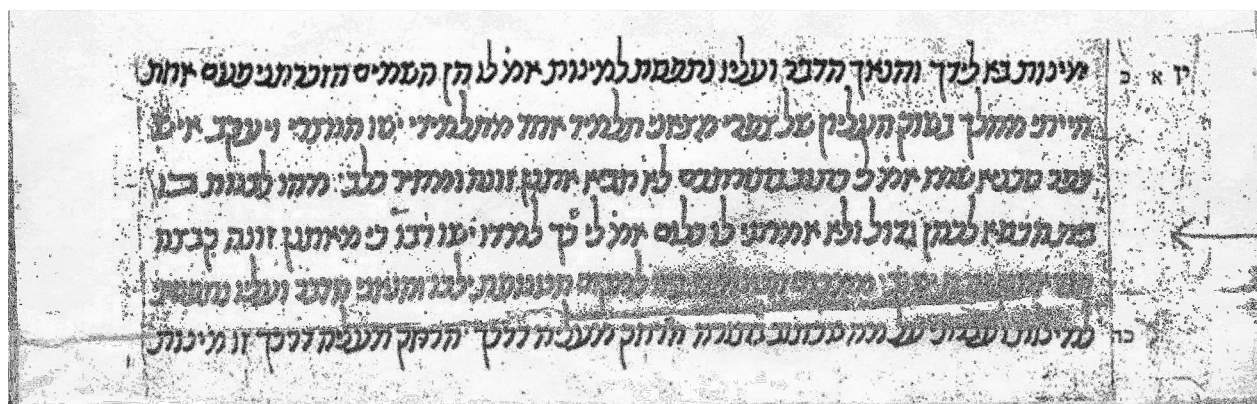 יז א כ
מינות בא לידך והנאך הדבר ועליו נתפסת למינות אמ' לו הן השמים הזכרתני פעם אחת
הייתי מהלך בשוק העליון של צפרי מצאני תלמיד אחד מתלמידי ישו הנוצרי ויעקב איש
כפר סכניא שמו אמ' לי כתוב בתורתכם לא תביא אתנן זונה ומחיר כלב מהו לעשות
בית הכסא לכהן גדול ולא אמרתי לו כלום אמ' לי כך למדו ישו רבו כי מאתנן זונה קבצה
למקום הטנופת ילכו והנאני הדבר ועליו נתפסתי
כה למינות ועברתי על מה שכתוב בתורה הרחק מעליה דרכך הרחק מעליה דרכך זו מינות